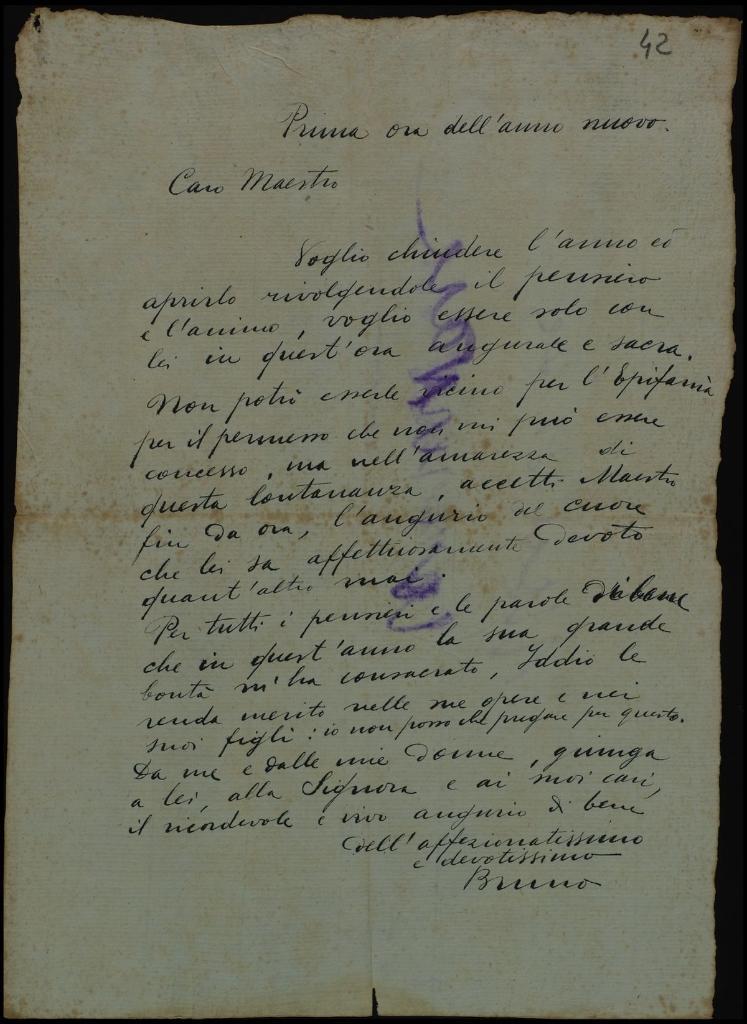 42
Prima ora dell'anno nuovo.
Caro Maestro
Voglio chiudere l'anno ed
aprirlo rivolgendole il pensiero
e l'animo, voglio essere solo con
lei in quest'ora augurale e sacra.
Non potrò esserle vicino per l'Epifania
per il permesso che non mi può essere
concesso, ma nell'amarezza di
questa lontananza, accetti Maestro
fin da ora, l'augurio del cuore
che lei sa affettuosamente devoto
quant'altro mai.
Per tutti i pensieri e le parole di bene
che in quest'anno la sua grande
bontà m'ha consacrato, Iddio le
renda merito nelle sue opere e nei
suoi figli: io non posso che pregare per questo.
Da me e dalle mie donne, giunga
a lei, alla Signora e ai suoi cari,
il ricordevole e vivo augurio di bene
dell'affezionatissimo
e devotissimo
Bruno